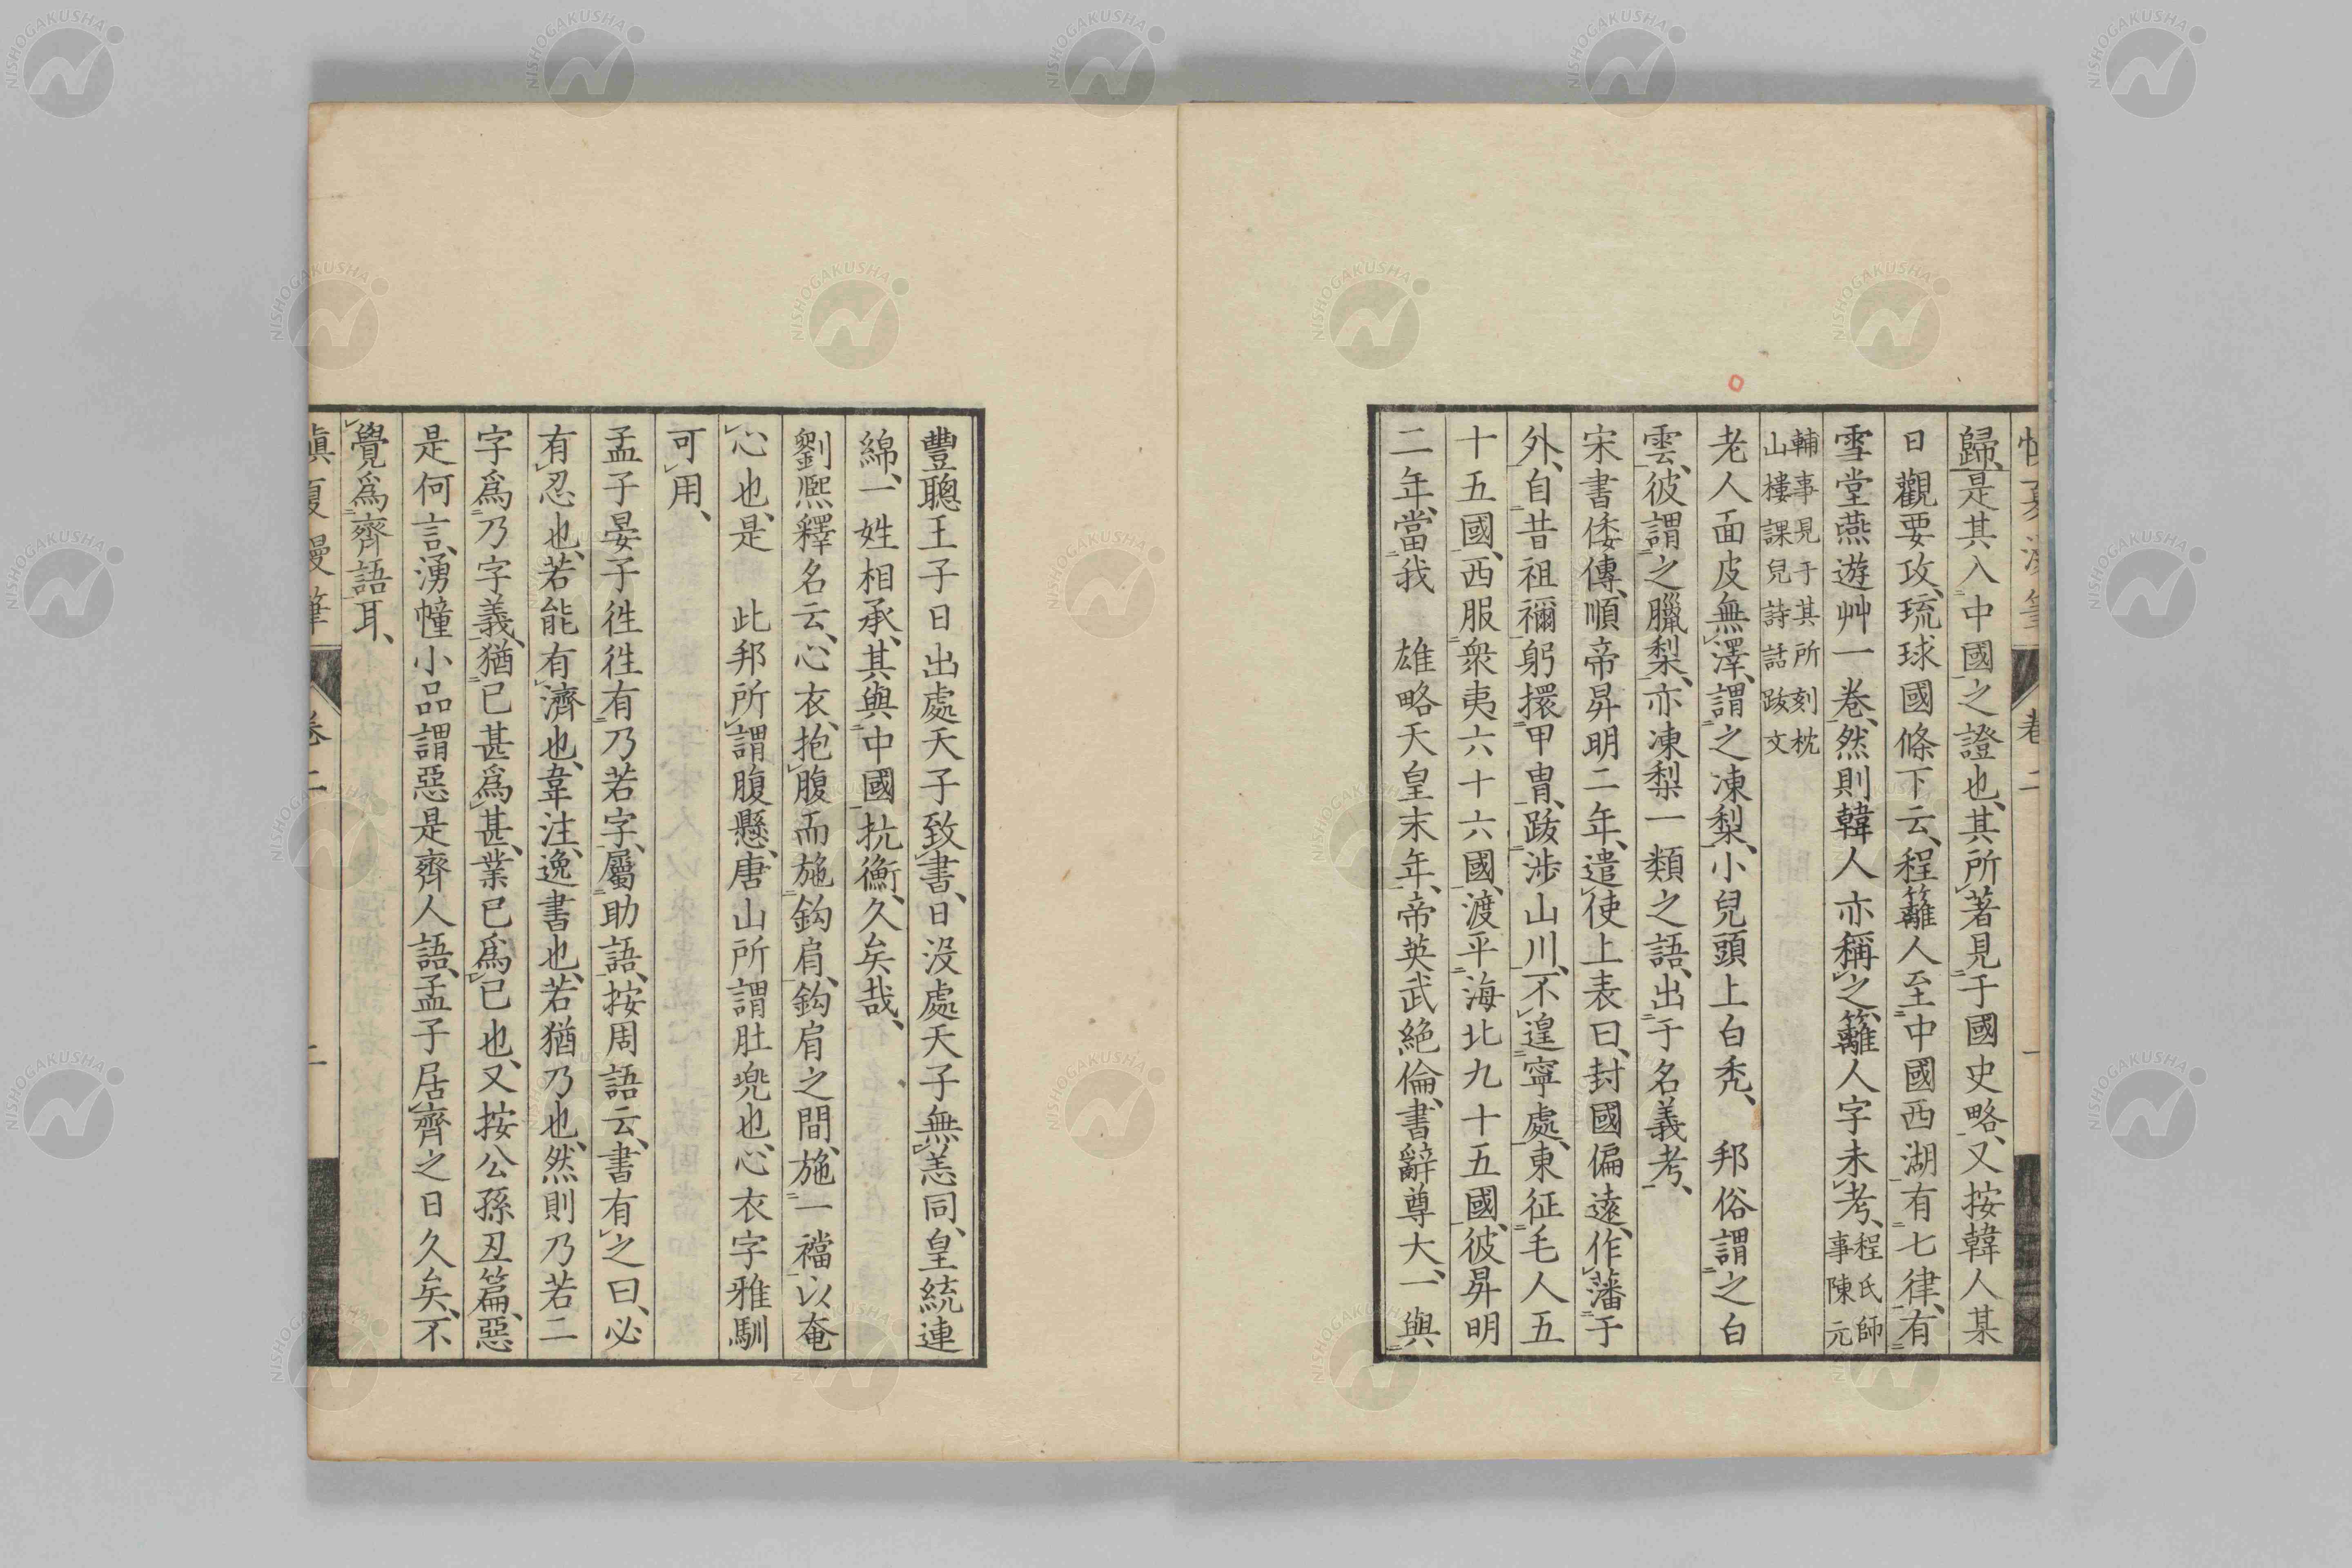 歸、是其入中國之證也、其所著見于國史略、又按韓人某
日觀要攷、琉球國條下云、程籬人至中國西湖有七律、有
雪堂燕遊艸一卷、然則韓人亦稱之、籬人字未考、程氏師
事陳元
輔事見于其所刻枕
山樓課兒詩話跋文
老人面皮無澤、謂之凍梨、小兒頭上白禿、邦俗謂之白
雲、彼謂之臘梨、亦凍梨一類之語、出于名義考、
宋書倭傳、順帝昇明二年、遣使上表曰、封國偏遠、作藩于
外、自昔祖禰躬擐甲冑、跋涉山川、不遑寧處、東征毛人五
十五國、西服衆夷六十六國、渡平海北九十五國、彼昇明
二年、當我 雄略天皇末年、帝英武絶倫、書辭尊大、一與
豐聰王子日出處天子致書、日沒處天子無恙同、皇統連
綿、一姓相承、其與中國抗衡、久矣哉、
劉熈釋名云、心衣、抱腹而施鈎肩、鈎肩之間、施一襠以奄
心也、是 此邦所謂腹懸、唐山所謂肚兜也、心衣字雅馴
可用、
孟子晏子徃徃有乃若字、屬助語、按周語云、書有之曰、必
有忍也、若能有濟也、韋注、逸書也、若猶乃也、然則乃若二
字爲乃字義、猶已甚爲甚、業已爲已也、又按公孫丑篇、惡
是何言、湧幢小品謂惡是齊人語、孟子居齊之日久矣、不
覺爲齊語耳、
愼夏漫筆 卷二 二
卷二 一
NISHOGAKUSHA